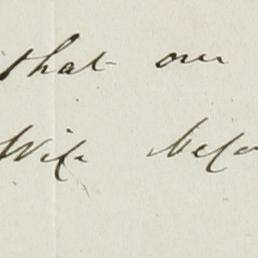 that our
Wife befo